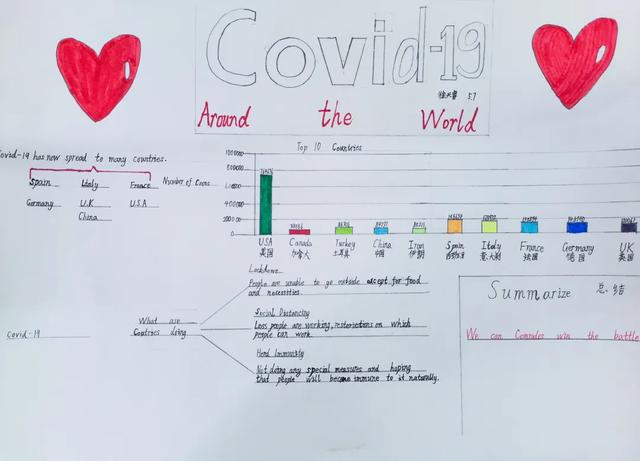 Covid-19
5.7
Around the World
Covid-19 has now spread to many countries.
Spain Italy France Number of Cases
Germany U.K U.S.A
China
Top 10 Countries
USA Canada Turkey China Iran Spain Italy France Germany UK
美国 加拿大 土耳其 中国 伊朗 西班牙 意大利 法国 德国 英国
Lockdown
People are unable to go outside except for food
and necessities.
Social Distancing
Less people are working, restrictions on which
people can work.
Herd Immunity
Not doing any special measures and hoping
that people will become immune to it naturally.
What are
Contries doing
Covid-19
Summarize 总结
We can Comrades win the battle